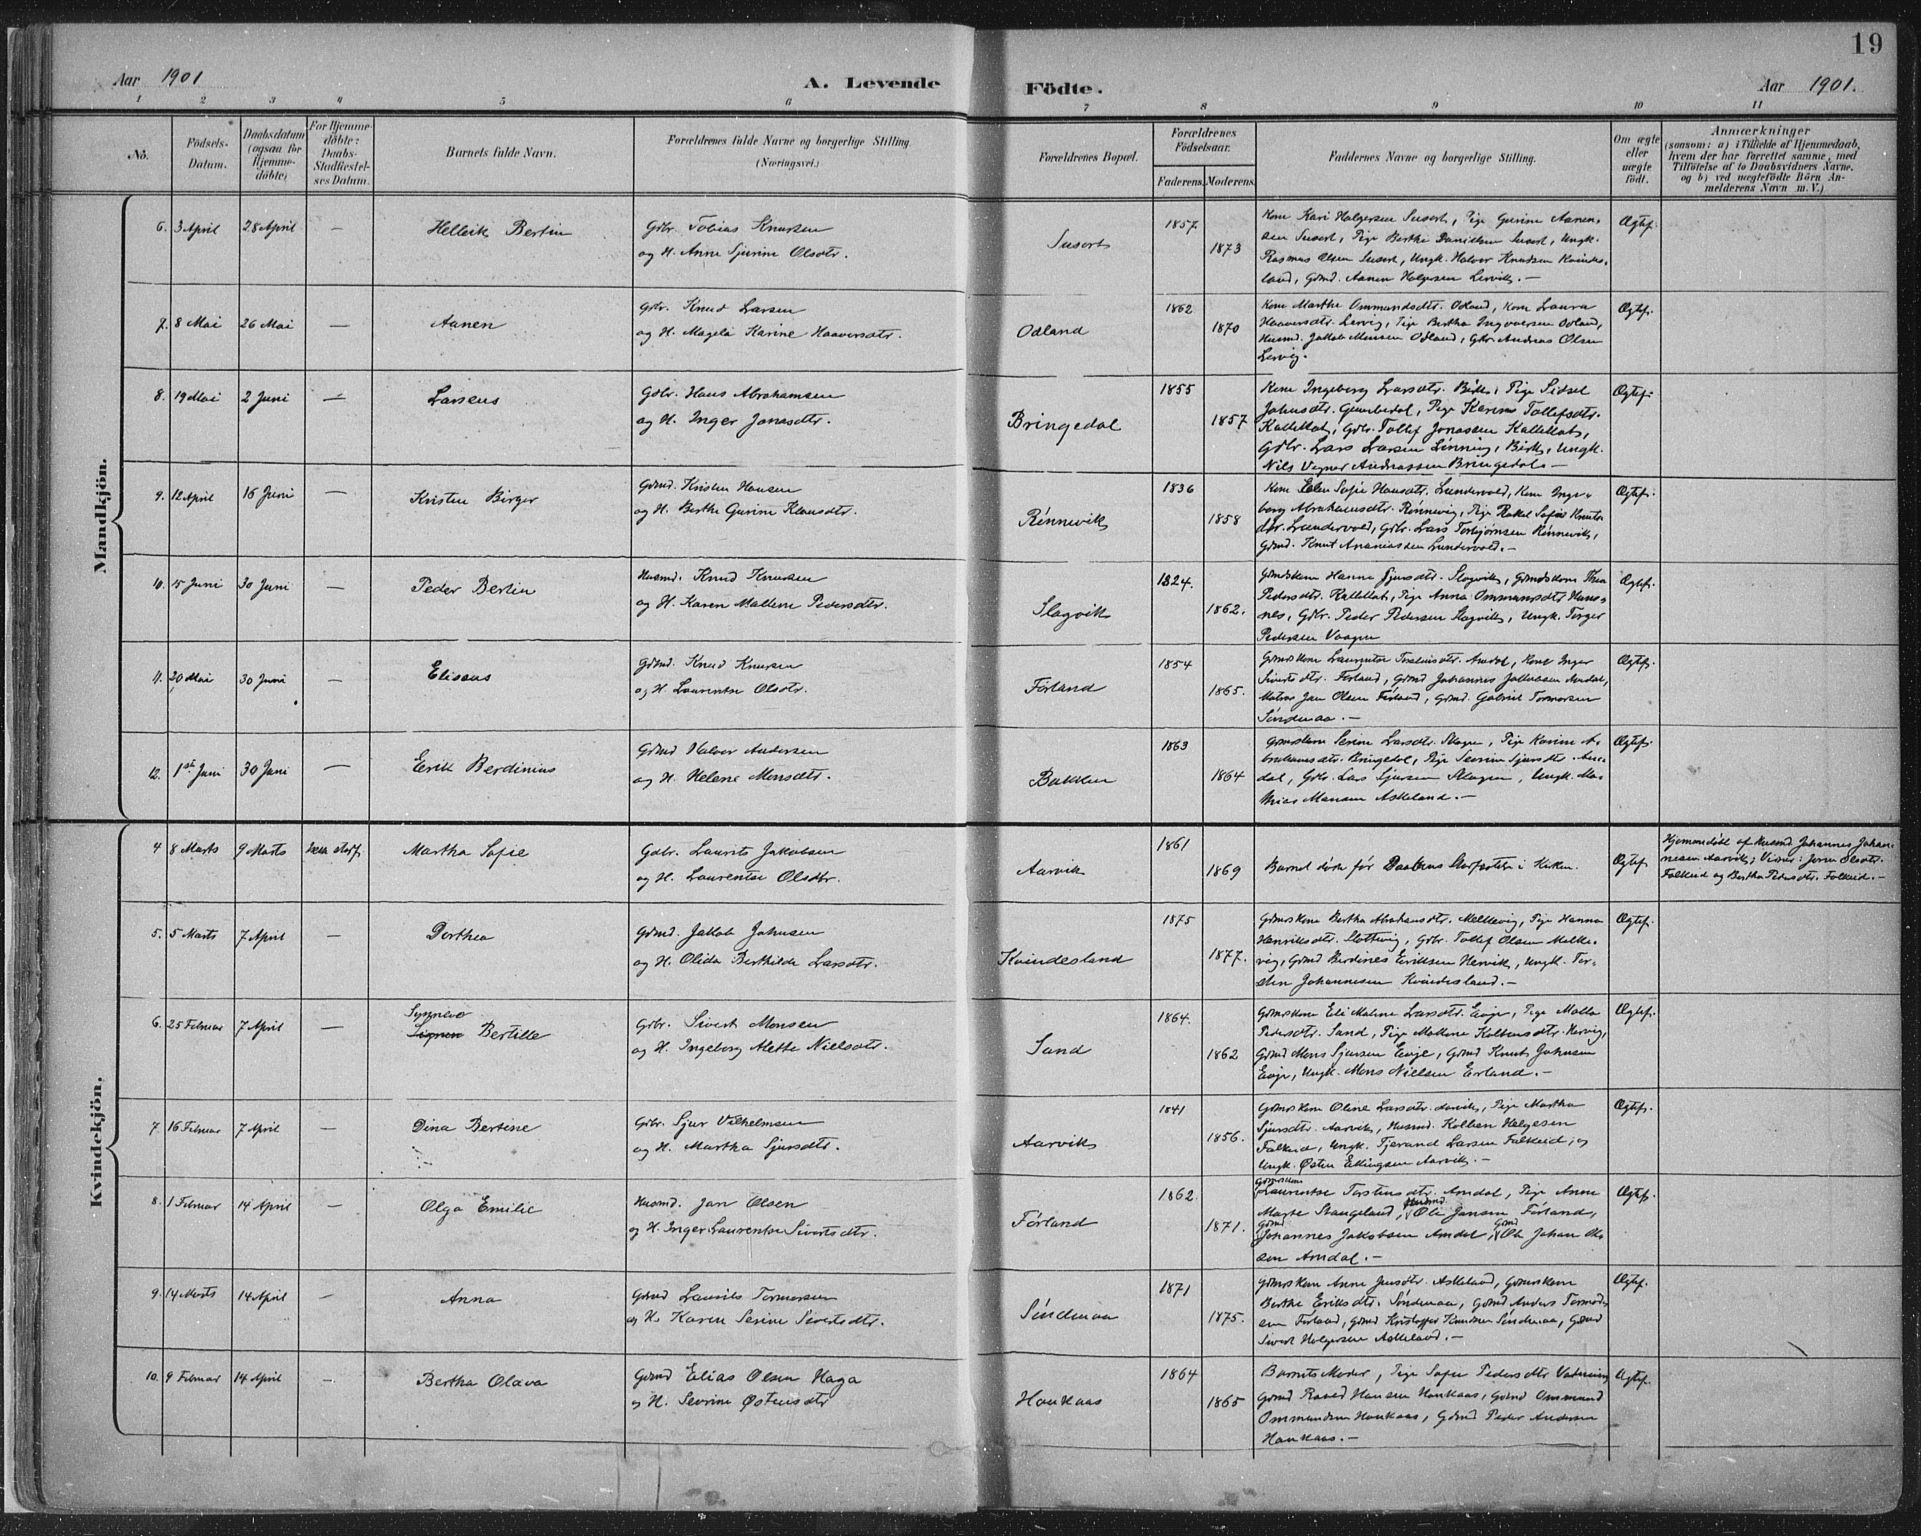 19
Aar 1901 A. Levende Födte. Aar 1901.
1 2 3 4 5 6 7 8 9 10 11
Nö.
Födsels-Datum.
Daabsdatum (ogsaa for Hjemmedöbte)
For Hjemmedöbte: Daabs-Stadfæstelses Datum.
Barnets fulde Navn.
Forældrenes fulde Navne og borgerlige Stilling. (Næringsvei.)
Forældrenes Bopæl.
Forældrenes Födselsaar.
Faderens. Moderens.
Faddernes Navne og borgerlige Stilling.
Om ægte eller uægte födt.
Anmærkninger
(saasom: a) i Tilfælde af Hjemmedaab,
hvem der har forrettet samme, med
Tilföielse af to Daabsvidners Navne.
og b) ved uægtefödte Börn An-
melderens Navn m. V.)
Mandkjön.
6. 3 April 28 April — Helleik Bertin
Gbr. Tobias Knutsen
og H. Anne Sjurine Olsdtr.
Susort 1857 1873
Kone Kari Helgesen Susort, Pige Gurine Aanen-
sen Susort, Pige Berthe Danielsen Susort, Ungk.
Rasmus Olsen Susort, Ungk. Halvor Knutsen Kvindes-
land, Grmd. Aanen Helgesen Lervik. —
Ægtef.
7. 8 Mai 26 Mai — Aanen
Gbr. Knud Larsen
og H. Magela Karine Haaversdtr.
Odland 1862 1870
Kone Marthe Ommundsdtr. Odland, Kone Laura
Haaversdtr. Lervig, Pige Bertha Ingvorsen Odland,
Husmd. Jakob Monsen Odland, Gbr. Andreas Olsen
Lervig.
Ægtef.
8. 19 Mai 2 Juni — Larsens
Gbr. Hans Abrahamsen
og H. Inger Jonasdtr.
Bringedal 1855 1857
Kone Ingeborg Larsdtr. Birk, Pige Sidsel
Johnsdtr. Pige Karina Tollefsdtr.
Kallekot, Gbr. Tollef Jonassen Kallekot,
Gbr. Lars Larsen Lönning, Birk, Ungk.
Nils Andreassen Bringedal. —
Ægtef.
9. 12 April 16 Juni — Kristen Birger
Grmd. Kristen Hansen
og H. Berthe Gurine Klausdtr.
Rönnevik 1836 1858
Kone Elen Sofie Hansdtr. Lundervold, Kone Inge-
borg Abrahamsdtr. Rönnevig, Pige Rakel Sofie Knuts-
dtr. Lundervold, Gbr. Lars Torbjörnsen Rönnevik,
Grmd. Knut Ananiassen Lundervold. —
Ægtef.
10. 15 Juni 30 Juni — Peder Bertin
Husmd. Knud Knutsen
og H. Karen Mallene Pedersdtr.
Slogvik 1824. 1862.
Grmdskone Hanna Sjursdtr. Slogvik, Grmdskone Thea
Pedersdtr. Kallekot, Pige Anna Ommundsdtr
nes, Gbr. Peder Pedersen Slogvik, Ungk. Torger
Pedersen Vaagen
Ægtef.
11. 20 Mai 30 Juni — Elisæus
Grmd. Knud Knutsen
og H. Laurentse Olsdtr.
Förland 1854 1865.
Grmdskone Laurentse Amdal, Kone Inger
Sivertsdtr. Förland, Grmd Johannes Jakobsen Amdal,
Matros Jan Olsen Förland, Grmd. Gabriel Tormorsen
Söndenaa. —
Ægtef.
12. 1ste Juni 30 Juni — Erik Berdinius
Grmd Halvor Andersen
og H. Helene Monsdtr.
Bakken 1863 1864
Grmdskone Serine Larsdtr. Pige Karine A-
brahamsdtr. Bringedal, Pige Severine Sjursdtr. Am-
dal, Gbr. Lars Sjursen Ungk. Ma-
thias Monsen Askeland. —
Ægtef.
Kvindekjön.
4 8 Marts 9 Marts Martha Sofie
Gbr. Laurits Jakobsen
og H. Laurentse Olsdtr.
Aarvik 1861 1869
Barnet döde för Daabens Stadfæstelse i Kirken.
Ægtef.
Hjemmedöbt af Husmd Johannes Johan-
nesen Aarvik; Vidner: Olsdtr.
Falkeid og Bertha Pedersdtr. Falkeid. —
5. 5 Marts 7 April — Dorthea
Grmd. Jakob Johnsen
og H. Olida Berthilde Larsdtr.
Kvindesland 1875 1877.
Grmdskone Bertha Abrahamsdtr. Melkevig, Pige Hanna
Henriksdtr. Slottevig, Gbr. Tollef Olsen Melke-
vig, Grmd Berdines Eriksen Hervik, Ungk. Tor-
sten Johannesen Kvindesland. —
Ægtef.
6. 25 Februar 7 April — Synneva Signera Bertille
Gbr. Sivert Monsen
og H. Ingeborg Alette Nielsdtr.
Sand 1864. 1862
Grmdskone Eli Maline Larsdtr. Eige, Pige Malla
Pedersdtr. Sand, Pige Mallene Kolbensdtr. Hervig,
Grmd Mons Sjursen Eige, Grmd Knut Johnsen
Eige, Ungk. Mons Nielsen Erland. —
Ægtef.
7. 16 Februar 7 April — Dina Bertine
Gbr. Sjur Vilhelmsen
og H. Martha Sjursdtr.
Aarvik 1841 1856.
Grmdskone Oline Larsdtr. Aarvik, Pige Martha
Sjursdtr. Aarvik, Husmd. Kolben Helgesen
Falkeid, Ungk. Tjerand Larsen Falkeid, og
Ungk. Östen Ellingsen Aarvik. —
Ægtef.
8. 1 Februar 14 April — Olga Emilie
Husmd. Jan Olsen
og H. Inger Laurentse Sivertsdtr.
Förland 1862. 1871.
Grmdskone
Laurentse Torstensdtr. Amdal, Pige Anne
Marte Stangeland, Husmd Ole Jansen Förland,
Grmd Johannes Jakobsen Amdal, Grmd Ole Johan Ol-
sen Amdal. —
Ægtef.
9. 14 Marts 14 April — Anna
Grmd Laurits Tormorsen
og H. Karen Serine Sivertsdtr.
Söndenaa 1871 1875.
Grmdskone Anne Jensdtr. Askeland, Grmdskone
Berthe Eriksdtr. Söndenaa, Grmd Anders Tormods-
sen Förland, Grmd Kristoffer Knudsen Söndenaa, Grmd
Sivert Helgesen Askeland. —
Ægtef.
10. 9 Februar 14 April — Bertha Olava
Grmd Elias Olsen Haga
og H. Severine Östensdtr
Haukaas 1864 1865
Barnets Moder, Pige Sofie Pedersdtr
Grmd Hansen Haukaas, Grmd Ommund
Ommundsen Haukaas, Grmd Peder Andersen
Haukaas. —
Ægtef.